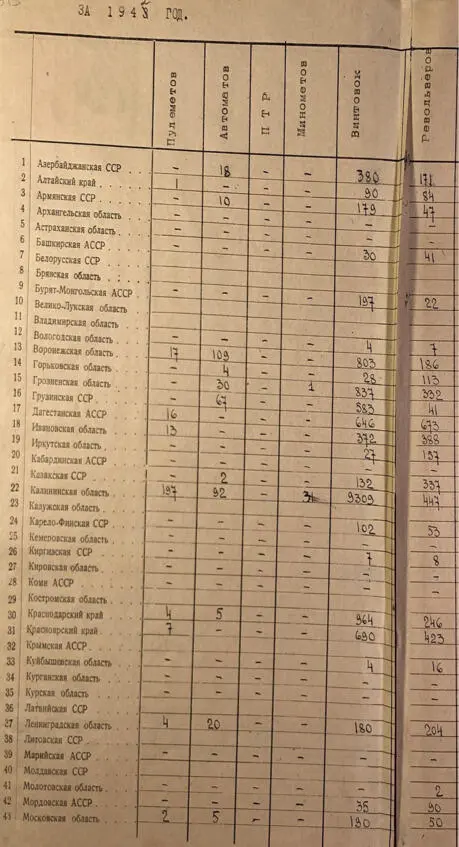 ЗА 1943 ГОД.
Пулеметов Автоматов ПТР Минометов Винтовок Револьверов
1 Азербайджанская ССР – 18 – – 380 171
2 Алтайский край 1 – – – 90 84
3 Армянская ССР – 10 – – 179 47
4 Архангельская область – – – – – –
5 Астраханская область – – – – – –
6 Башкирская АССР – – – – 30 41
7 Белорусская ССР
8 Брянская область
9 Бурят-Монгольская АССР – – – – 197 22
10 Велико-Лукская область
11 Владимирская область
12 Вологодская область – – – – 4 7
13 Воронежская область 17 109 – – 803 186
14 Горьковская область – 4 – – 28 113
15 Грозненская область – 30 – 1 837 332
16 Грузинская ССР – 67 – – 583 41
17 Дагестанская АССР 16 – – – 646 673
18 Ивановская область 13 – – – 372 388
19 Иркутская область – – – – 27 157
20 Кабардинская АССР – – – – – –
21 Казахская ССР – 2 – – 132 337
22 Калининская область 197 92 – 9309 447
23 Калужская область
24 Карело-Финская ССР – – – – 102 53
25 Кемеровская область – – – – – –
26 Киргизская ССР – – – – 7 8
27 Кировская область – – – – – –
28 Коми АССР – – – – – –
29 Костромская область
30 Краснодарский край 4 5 – – 964 246
31 Красноярский край 7 – – – 690 423
32 Крымская АССР
33 Куйбышевская область – – – – 4 16
34 Курганская область – – – – – –
35 Курская область – – – – – –
36 Латвийская ССР
37 Ленинградская область 4 20 – – 180 204
38 Литовская ССР
39 Марийская АССР – – – – – –
40 Молдавская ССР
41 Молотовская область – – – – – 2
42 Мордовская АССР – – – – 35 90
43 Московская область 2 5 – – 190 50